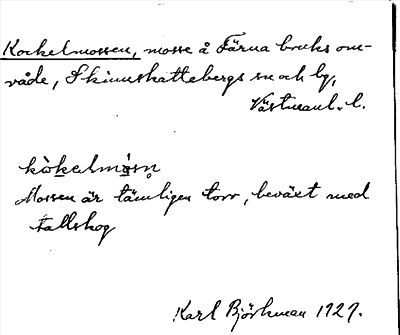 Kockelmossen, mosse å Färna bruks om-
råde, Skinnskattebergs sn och lg,
Västmanl. l.
kòkelmòsn̥
Mossen är tämligen torr, beväxt med
tallskog
Karl Björkman 1927.